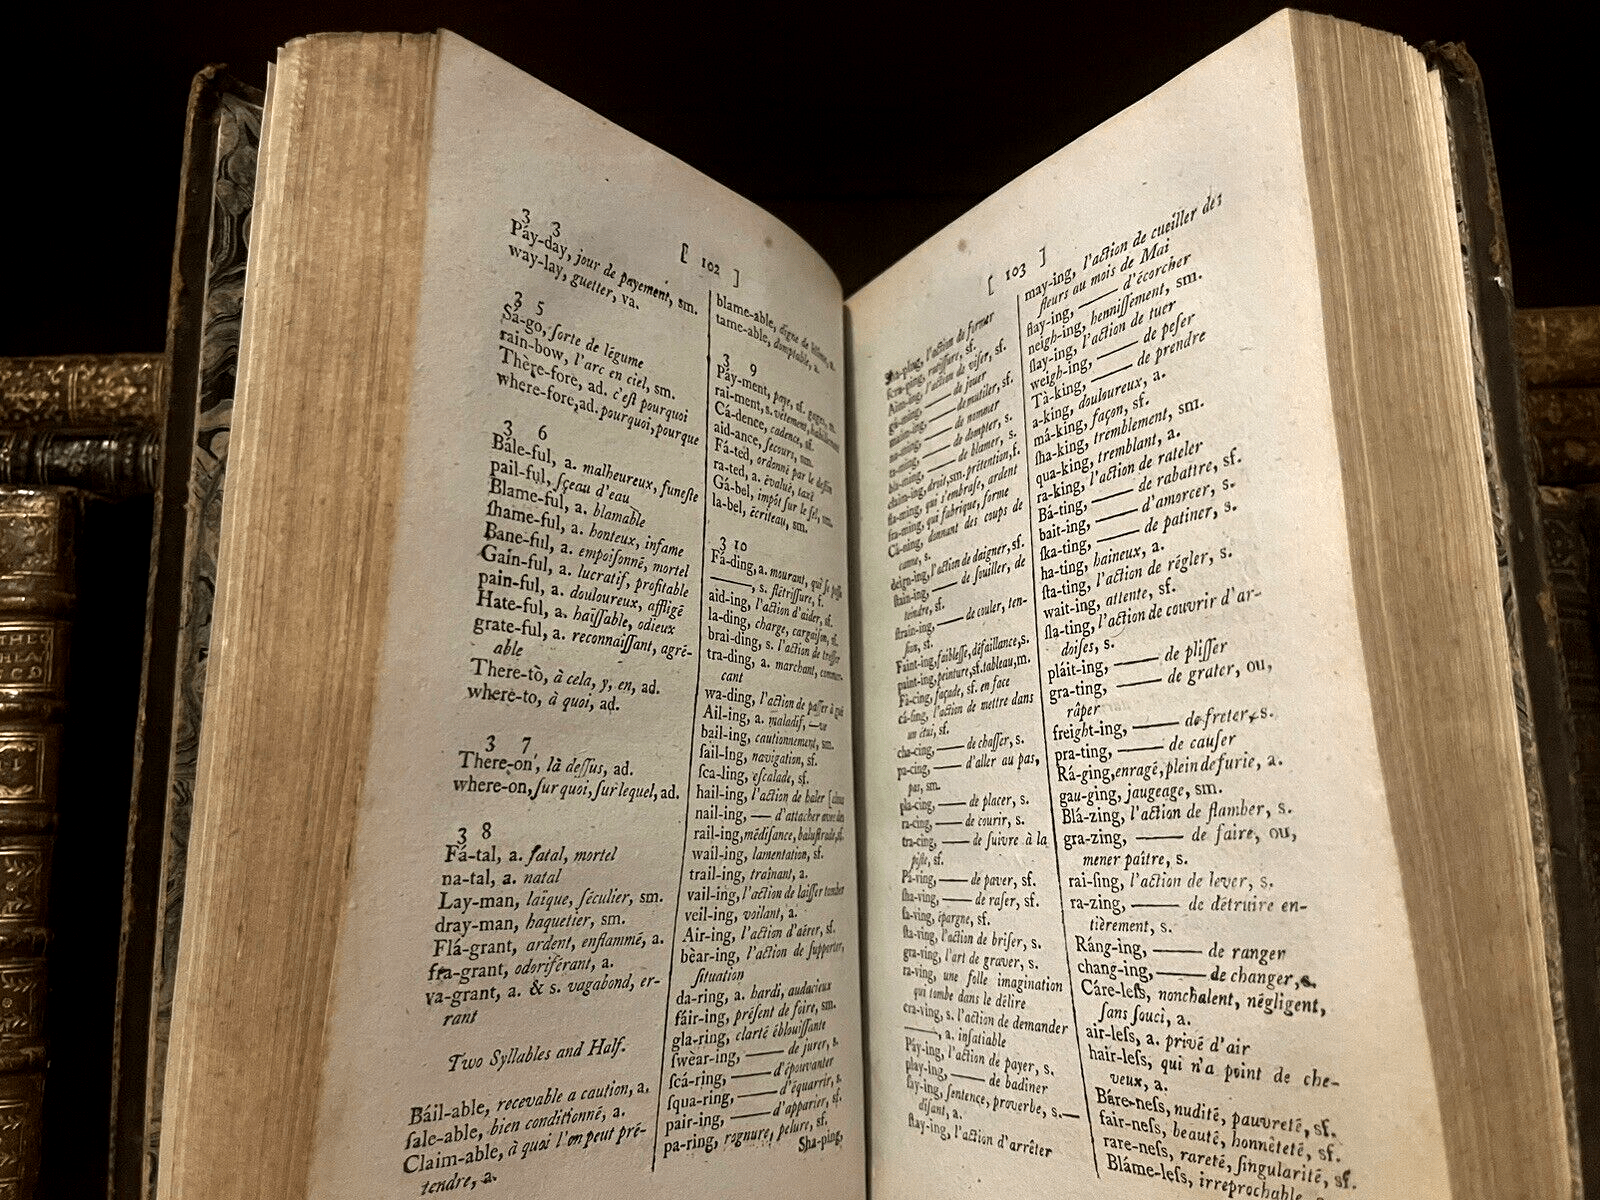 [ 102 ]
3 3
Páy-day, jour de payement, sm.
way-lay, guetter, va.
3 5
Sá-go, ſorte de légume
rain-bow, l'arc en ciel, sm.
Thère-fore, ad. c'eſt pourquoi
where-fore, ad. pourquoi, pourque
3 6
Bále-ful, a. malheureux, funeſte
pail-ful, ſçeau d'eau
Blame-ful, a. blamable
ſhame-ful, a. honteux, infame
Bane-ful, a. empoiſonné, mortel
Gain-ful, a. lucratif, profitable
pain-ful, a. douloureux, affligé
Hate-ful, a. haïſſable, odieux
grate-ful, a. reconnaiſſant, agré-
able
There-tò, à cela, y, en, ad.
where-to, à quoi, ad.
3 7
There-on', là deſſus, ad.
where-on, ſur quoi, ſur lequel, ad.
3 8
Fá-tal, a. fatal, mortel
na-tal, a. natal
Lay-man, laïque, ſéculier, sm.
dray-man, haquetier, sm.
Flá-grant, ardent, enflammé, a.
fra-grant, odoriférant, a.
va-grant, a. & s. vagabond, er-
rant
Two Syllables and Half.
Báil-able, recevable a caution, a.
ſale-able, bien conditionné, a.
Claim-able, à quoi l'on peut pré-
tendre, a.
blame-able, digne de
tame-able, domptable, a.
3 9
Páy-ment, paye, sf. gages, m.
rai-ment, s. vêtement, habillement
Cá-dence, cadence, sf.
aid-ance, ſecours, sm.
Fá-ted, ordonné par le deſtin
ra-ted, a. évalué, taxé
Gá-bel, impôt ſur le ſel, sm.
la-bel, écriteau, sm.
3 10
Fá-ding, a. mourant, qui ſe paſſe
——, s. flétriſſure, f.
aid-ing, l'action d'aider, sf.
la-ding, charge, cargaiſon, sf.
brai-ding, s. l'action de treſſer
tra-ding, a. marchant, commer-
cant
wa-ding, l'action de paſſer à gué
Ail-ing, a. maladif, —ve
bail-ing, cautionnement, sm.
ſail-ing, navigation, sf.
ſca-ling, eſcalade, sf.
hail-ing, l'action de haler
nail-ing, — d'attacher avec des
rail-ing, médiſance, baluſtrade, sf.
wail-ing, lamentation, sf.
trail-ing, traînant, a.
vail-ing, l'action de laiſſer tomber
veil-ing, voilant, a.
Air-ing, l'action d'aérer, sf.
bèar-ing, l'action de ſupporter,
ſituation
da-ring, a. hardi, audacieux
fáir-ing, préſent de foire, sm.
gla-ring, clarté éblouiſſante
ſwèar-ing, —— de jurer, s.
ſcá-ring, —— d'épouvanter
ſqua-ring, —— d'équarrir, s.
pair-ing, —— d'apparier, sf.
pa-ring, rognure, pelure, sf.
Sha-ping,
[ 103 ]
Sha-ping, l'action de former
ſcra-ping, ratiſſure, sf.
Aim-ing, l'action de viſer, sf.
ga-ming, —— de jouer
maim-ing, —— de mutiler, sf.
na-ming, —— de nommer
ta-ming, —— de dompter, s.
bla-ming, —— de blamer, s.
claim-ing, droit, sm. prétention, f.
fla-ming, qui s'embraſe, ardent
fra-ming, qui fabrique, forme
Cá-ning, donnant des coups de
canne, s.
deign-ing, l'action de daigner, sf.
ſtain-ing, —— de ſouiller, de
teindre, sf.
ſtrain-ing, —— de couler, ten-
ſion, sf.
Faint-ing, faibleſſe, défaillance, s.
paint-ing, peinture, sf. tableau, m.
Fá-cing, façade, sf. en face
cá-ſing, l'action de mettre dans
un étui, sf.
cha-cing, —— de chaſſer, s.
pa-cing, —— d'aller au pas,
pas, sm.
pla-cing, —— de placer, s.
ra-cing, —— de courir, s.
tra-cing, —— de ſuivre à la
piſte, sf.
Pá-ving, —— de paver, sf.
ſha-ving, —— de raſer, sf.
ſa-ving, épargne, sf.
ſta-ving, l'action de briſer, s.
gra-ving, l'art de graver, s.
ra-ving, une folle imagination
qui tombe dans le délire
cra-ving, s. l'action de demander
——, a. inſatiable
Páy-ing, l'action de payer, s.
play-ing, —— de badiner
ſay-ing, ſentence, proverbe, s.—
diſant, a.
ſtay-ing, l'action d'arrêter
may-ing, l'action de cueiller des
fleurs au mois de Mai
flay-ing, —— d'écorcher
neigh-ing, henniſſement, sm.
ſlay-ing, l'action de tuer
weigh-ing, —— de peſer
Tà-king, —— de prendre
a-king, douloureux, a.
má-king, façon, sf.
ſha-king, tremblement, sm.
qua-king, tremblant, a.
ra-king, l'action de rateler
Bá-ting, —— de rabattre, sf.
bait-ing, —— d'amorcer, s.
ſka-ting, —— de patiner, s.
ha-ting, haineux, a.
ſta-ting, l'action de régler, s.
wait-ing, attente, sf.
ſla-ting, l'action de couvrir d'ar-
doiſes, s.
pláit-ing, —— de pliſſer
gra-ting, —— de grater, ou,
râper
freight-ing, —— de freter, s.
pra-ting, —— de cauſer
Rá-ging, enragé, plein de furie, a.
gau-ging, jaugeage, sm.
Blá-zing, l'action de flamber, s.
gra-zing, —— de faire, ou,
mener paître, s.
rai-ſing, l'action de lever, s.
ra-zing, —— de détruire en-
tièrement, s.
Ráng-ing, —— de ranger
chang-ing, —— de changer, s.
Cáre-leſs, nonchalent, négligent,
ſans ſouci, a.
air-leſs, a. privé d'air
hair-leſs, qui n'a point de che-
veux, a.
Báre-neſs, nudité, pauvreté, sf.
fair-neſs, beauté, honnêteté, sf.
rare-neſs, rareté, ſingularité, sf.
Bláme-leſs, irreprochable,